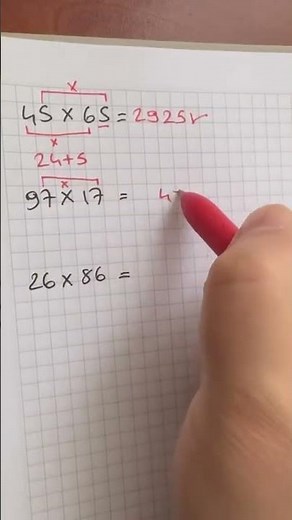 x
45 x 65 = 2925
x
24+5
x
97 x 17 = 4
26 x 86 =